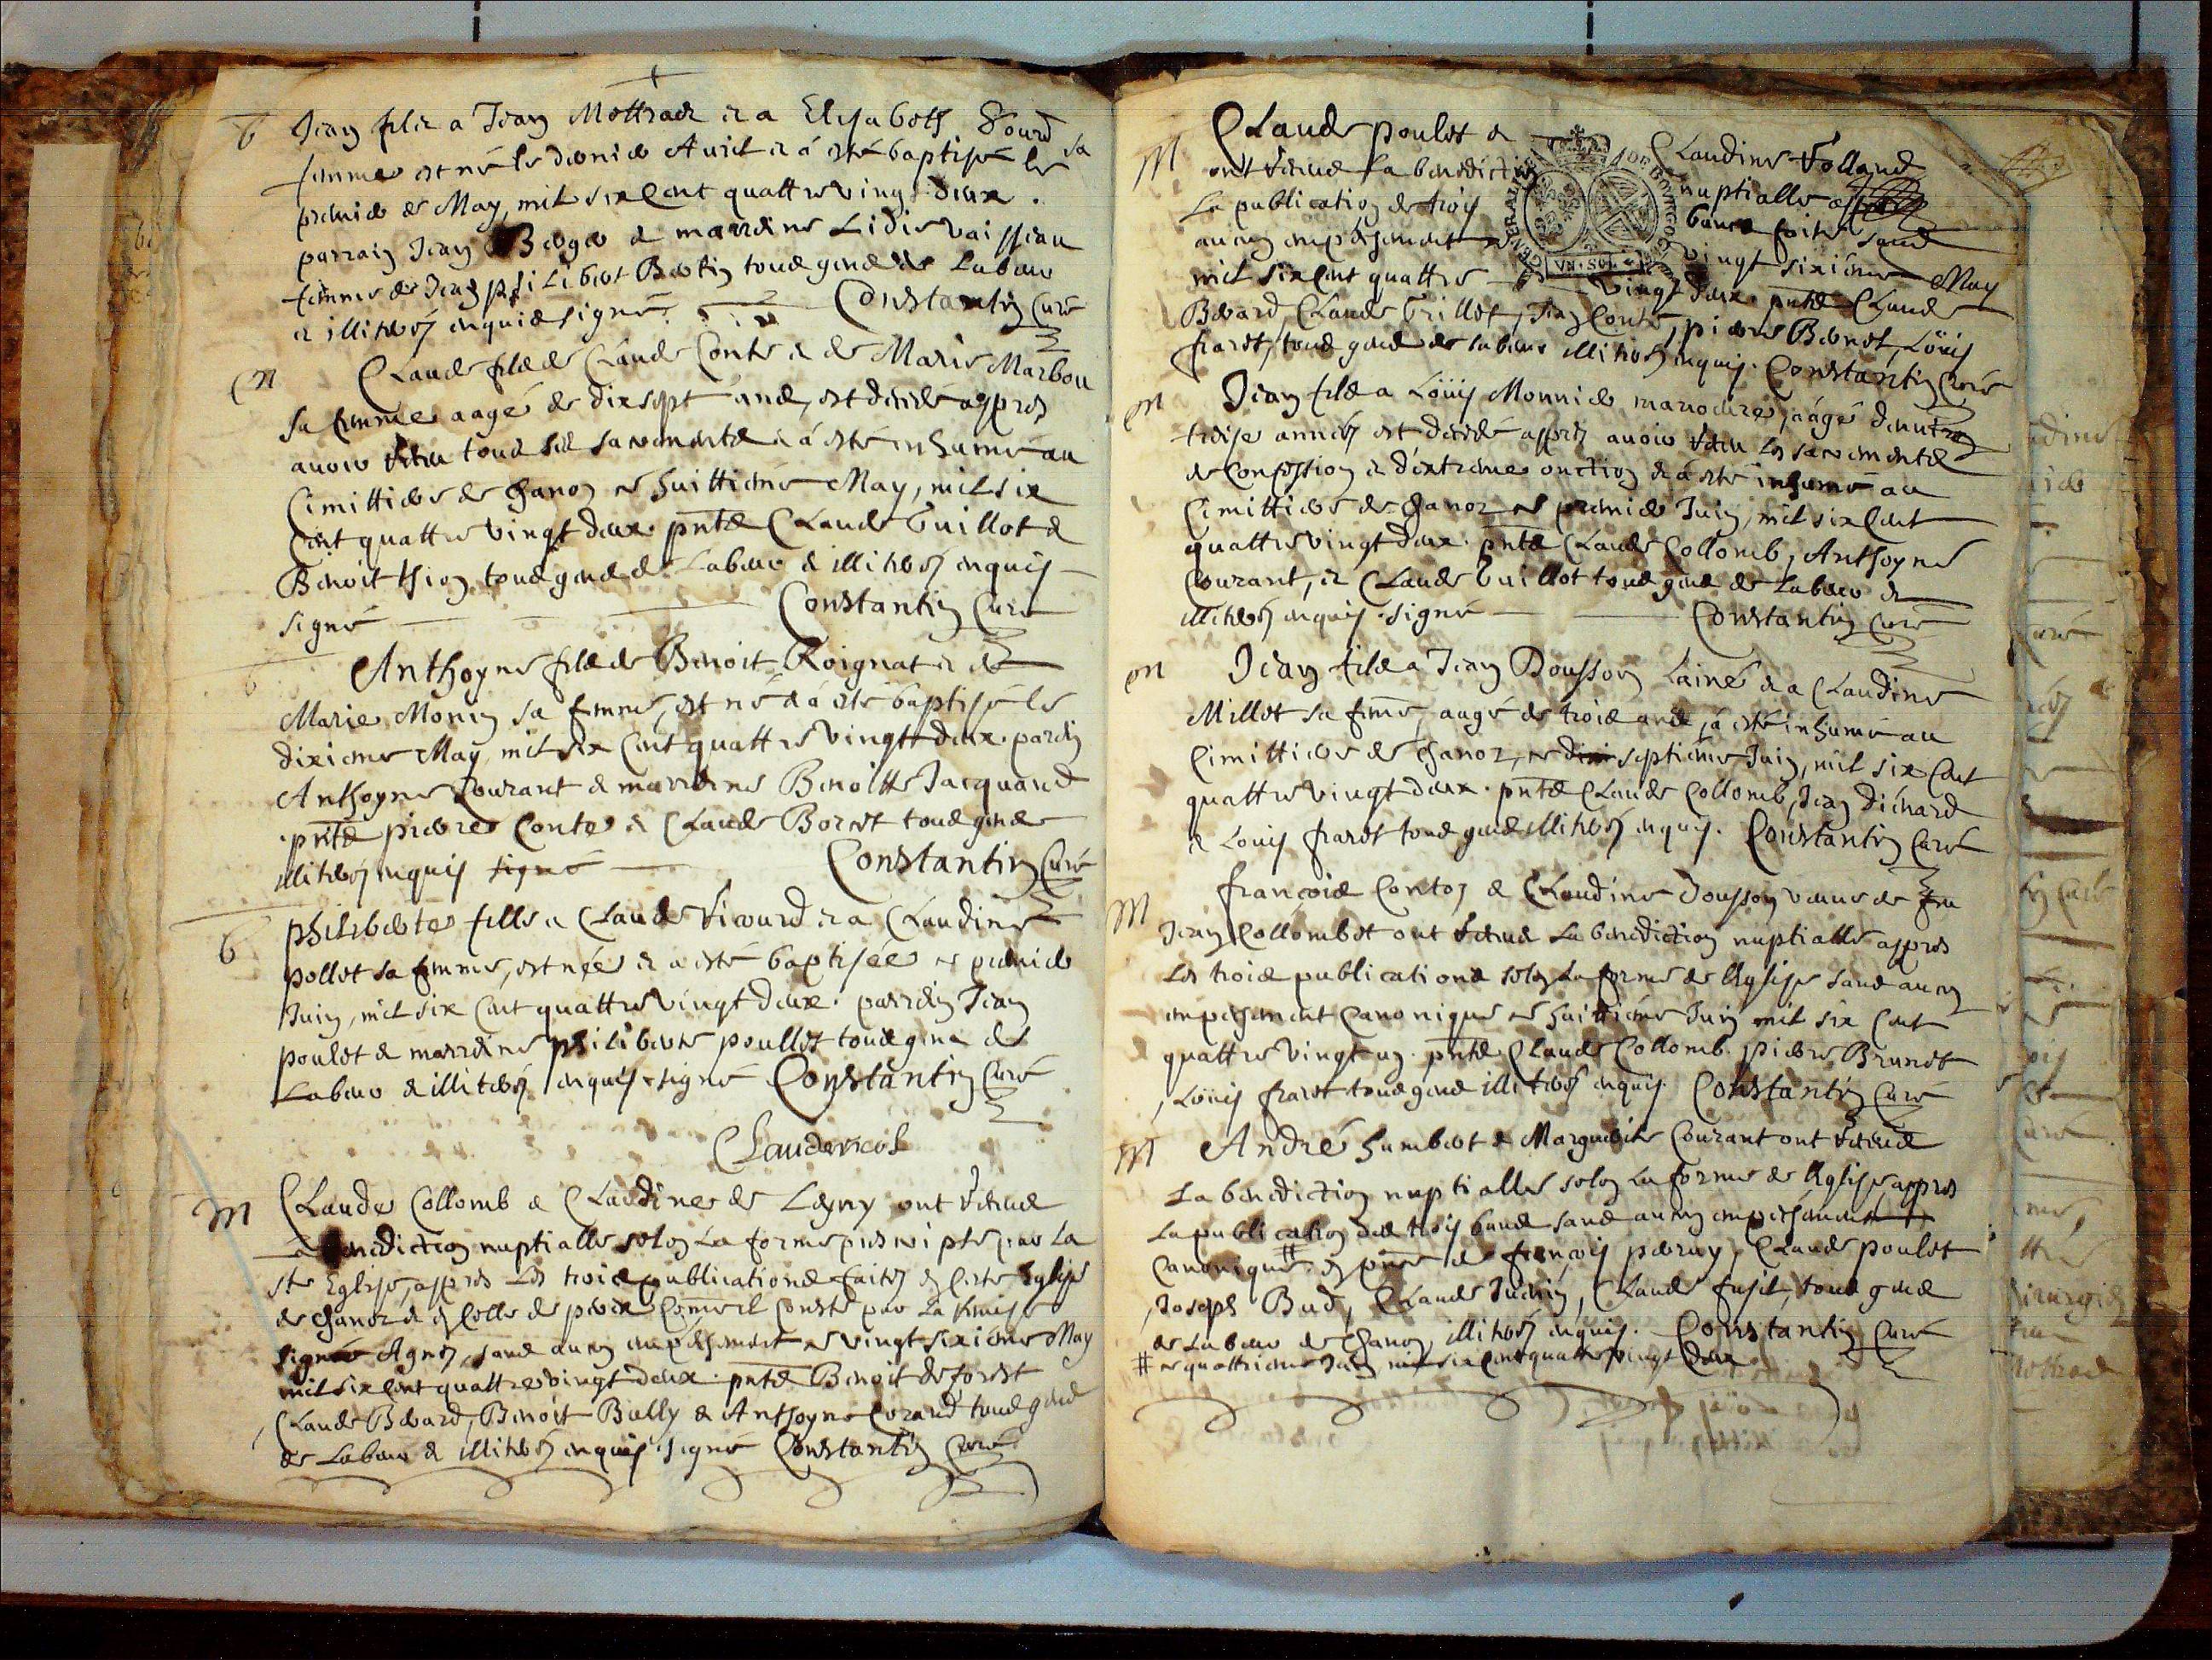 b
Jean filz a Jean Mottrade et a Elisabeth Sourd sa
femme est né le dernier Auril et á esté baptisé le
premier de May, mil six Cent quattre vingt deux.
parrain Jean Berger et marrdine Lidie vaisseau
femme de Jean philibert Bertin tous gens de Labeur
et illiterés enquis signé. Constantin Curé
m
Claude filz de Claude Conte et de Marie Marbou
sa femme aagé de dixsept ans, est decedé appres
auoir receu tous ses sacrements et á esté inhumé au
Cimittiere de Chanoz ce huittieme May, mil six
Cent quattre vingt deux. pnts Claude Guillot et
Benoit thion tous gens de Labeur et illiterés enquis
signé Constantin Curé
b
Anthoyne filz de Benoit Roignat et de
Marie Monin sa femme, est né et á esté baptisé le
dixieme May, mil six Cent quattre vingt deux. pardin
Anthoyne Courant et marrdine Benoitte Jacquand
pnts pierre Conte et Claude Boret tous gens
illiterés enquis signé Constantin Curé
b
philiberte fille a Claude Ricourd et a Claudine
pollet sa femme, est née et a esté baptisée ce premier
Juin, mil six Cent quattre vingt deux. pardin Jean
poulet et marrdine philiberte poullet tous gens de
Labeur et illiterés enquis signé Constantin Curé
M
Claude Collomb et Claudine de Legny ont receus
La benediction nuptialle selon La forme prescripte par La
ste Eglise, appres Les trois publications faites en cette Eglise
de Chanoz et en Celle de Comeil Conste par La
signée Agnes, sans aucun empechement ce vingt sixieme May
mil six Cent quattre vingt deux. pnts Benoit deforest
Claude Berard, Benoit Bully et Anthoyne Corand tous gens
de Labeur et illiterés enquis signé Constantin Curé
M
Claude poulet et Claudine Folland
ont receus la benediction nuptialle
La publication de trois bancs faite sans
aucun empechement ce vingt sixieme May
mil six Cent quattre vingt deux pnts Claude
Berard, Claude Guillot, Jean Conte, pierre Benet, Löuis
fraret, tous gens de Labeur illiterés enquis. Constantin Curé
m
Jean filz a Löuis Monnier manouvre, áagé denuiron
treise années est decedé appres auoir receu les sacrements
de Confession et d'extreme onction et á esté inhumé au
Cimittiere de Chanoz ce premier Juin, mil six Cent
quattre vingt deux. pnts Claude Collomb, Anthoyne
Courant, et Claude Guillot tous gens de Labeur et
illiterés enquis. signé Constantin Curé
m
Jean filz a Jean Dousson Lainé et a Claudine
Millet sa femme, aagé de trois ans, á esté inhumé au
Cimittiere de Chanoz, ce septieme Juin, mil six Cent
quattre vingt deux. pnts Claude Collomb, Jean dichard
et Louis fraret tous gens illiterés enquis. Constantin Curé
M
francois Conton et Claudine Dousson veuue de feu
Jean Collombet ont receus La benediction nuptialle appres
Les trois publications selon La forme de lEglise sans aucun
empechement Canonique ce huittieme Juin mil six Cent
quattre vingt un. pnts Claude Collomb. pierre Brunet
, Löuis fraret tous gens illiterés enquis. Constantin Curé
M
André humbert et Marguerite Courant ont receus
La benediction nuptialle selon La forme de lEglise, appres
La publication de trois bancs sans aucun empechement
Canonique # en pnce de francois perruy, Claude poulet
, Joseph Bud, Claude Juenin, Claude fusil, tous gens
de Labeur de Chanoz, illiterés enquis. Constantin Curé
# ce quattrieme Juin mil six Cent quatre vingt deux